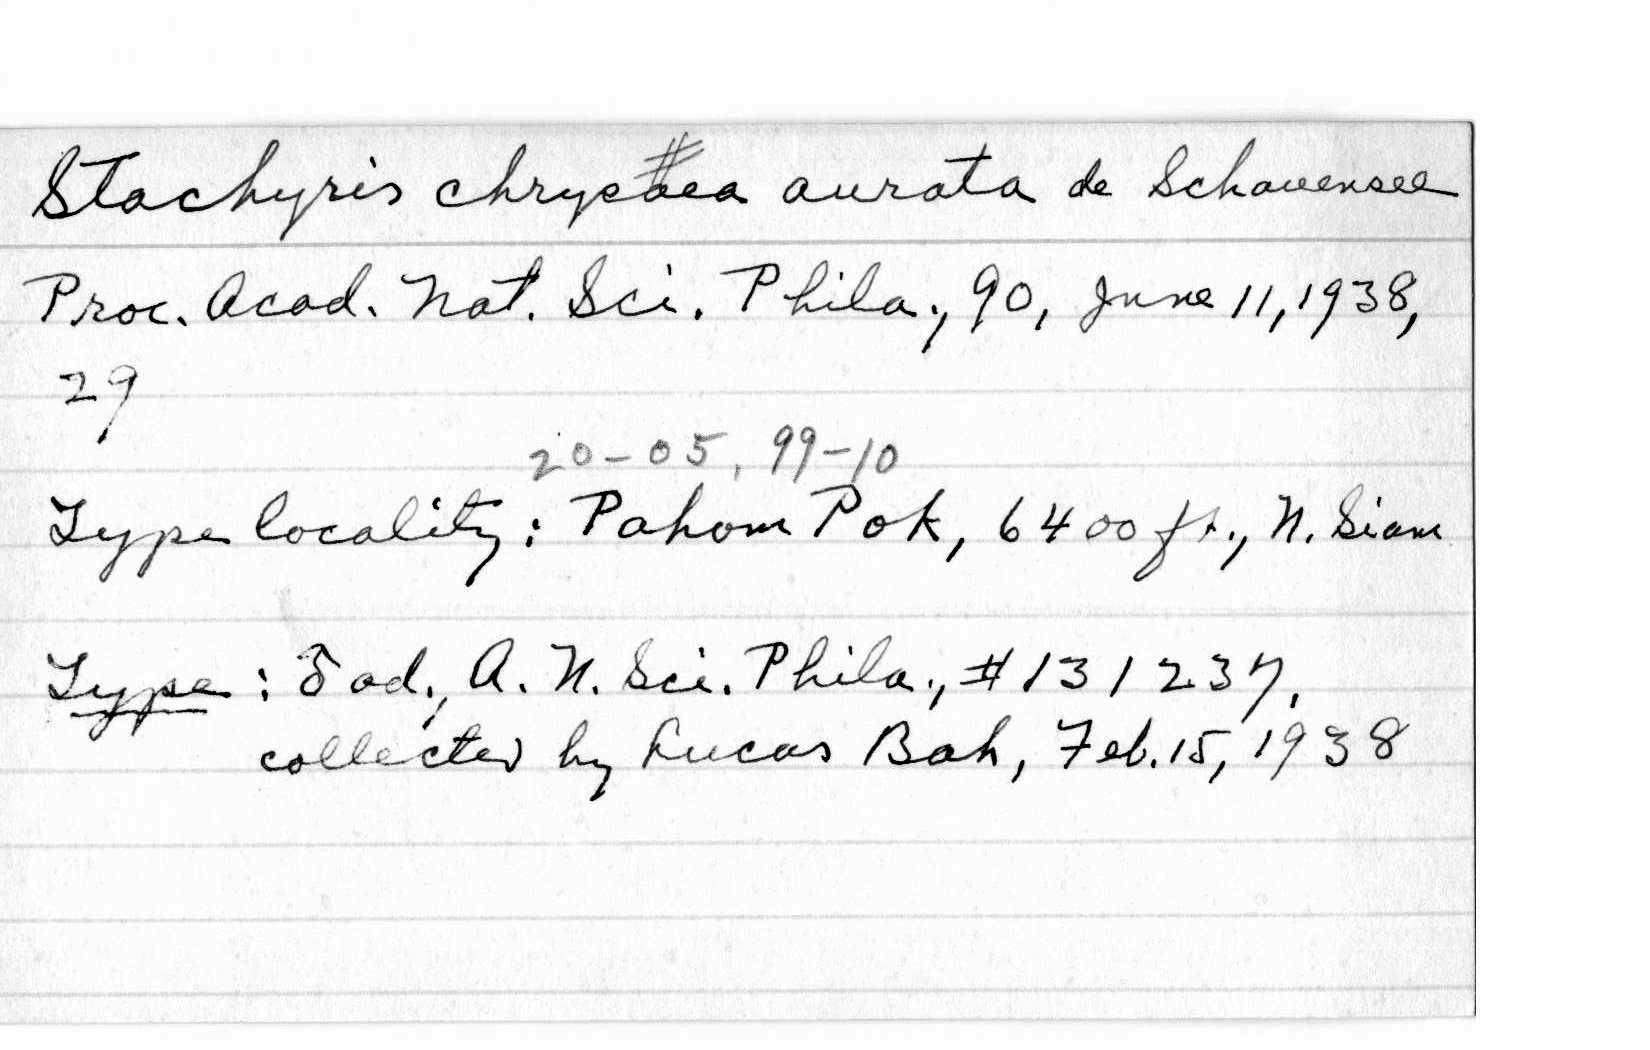 Stachyris chrysaea aurata de Schauensee
Proc. Acad. Nat. Sci. Phila., 90, June 11, 1938,
29
20-05, 99-10
Type locality: Pahom Pok, 6400 ft., N. Siam
Type: ♂ ad., A. N. Sci. Phila., #131237,
collected by Lucas Bah, Feb. 15, 1938